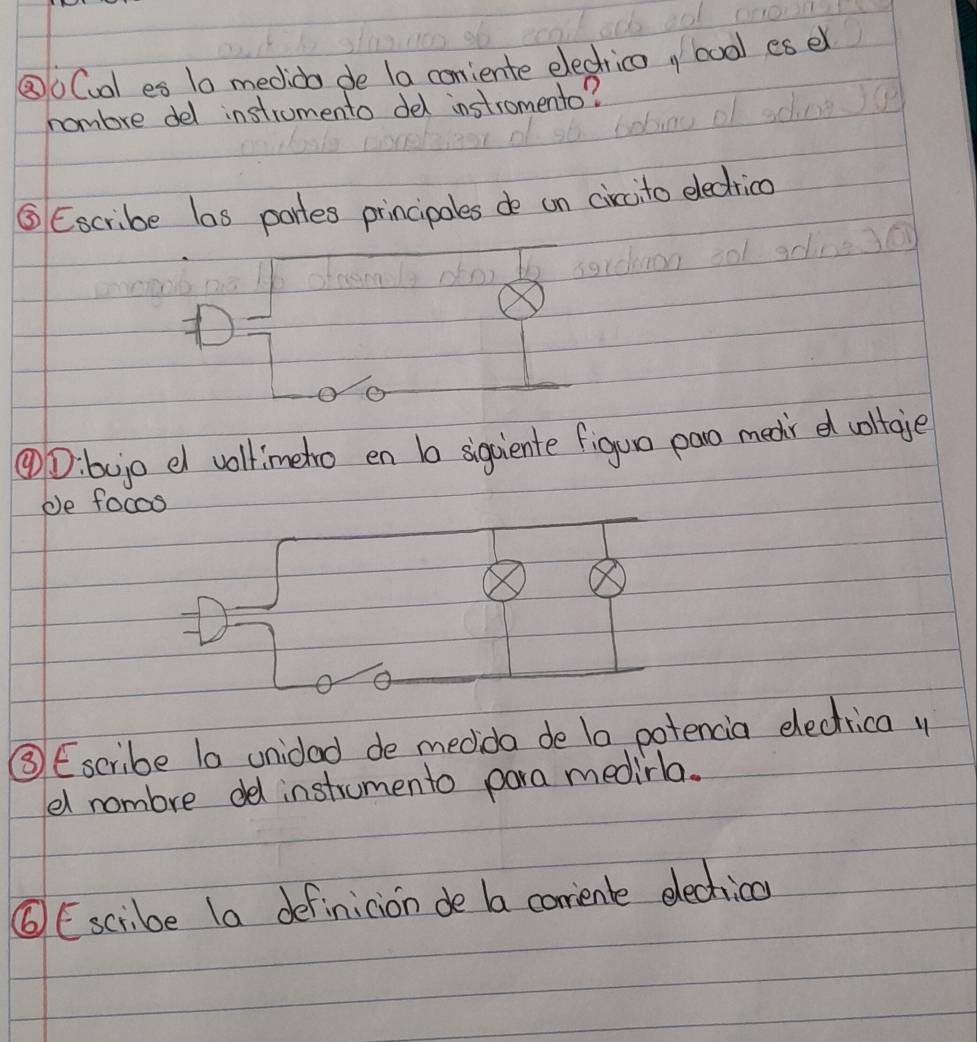 ② ¿Cual es la medida de la corriente electrica y cual es el
nombre del instrumento del instromento?
③ Escribe las partes principales de un circuito electrico
④ Dibuja el voltimetro en la siguiente figura para medir el voltaje
de focos
③ Escribe la unidad de medida de la potencia electrica y
el nombre del instrumento para medirla.
⑥ Escribe la definición de la corriente electrica